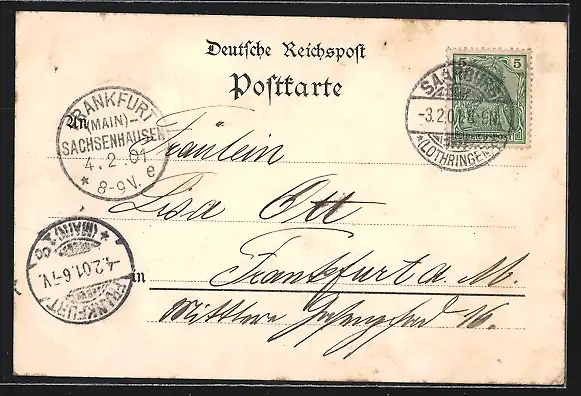 Deutsche Reichspost
Postkarte
5 5
SAARBURG
-3.2.01. 8-9N.
*(LOTHRINGEN)
FRANKFURT
(MAIN)-
SACHSENHAUSEN
4.2.01
* 8-9V. e
An Fräulein
Lisa Ott
in Frankfurt a. M.
Mittlerer 16.
FRANKFURT
4.2.01. 6-7V.
*(MAIN)*